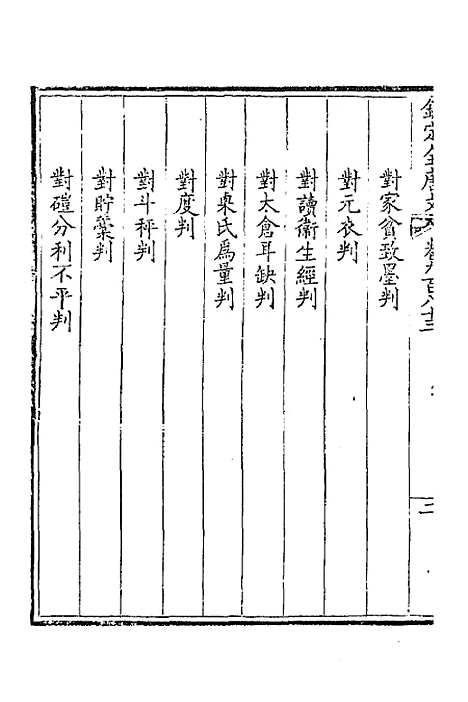 欽定全唐文 卷九百八十三
二
對家貧致墨判
對元衣判
對讀衞生經判
對太倉耳缺判
對㮚氏爲量判
對度判
對斗秤判
對貯藁判
對磑分利不平判